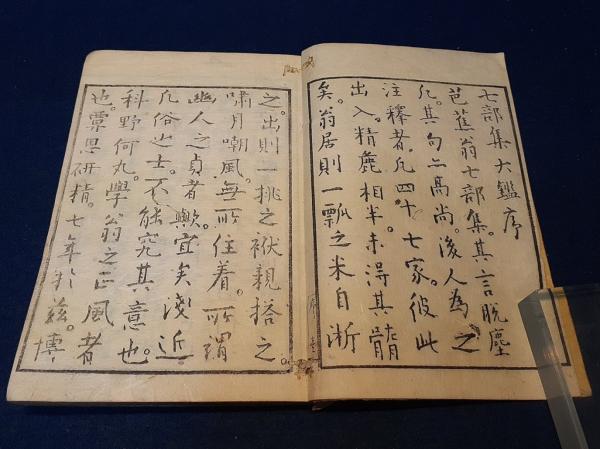 七部集大鑑序
芭蕉翁七部集。其言脱塵
凡。其句亦高尚。後人為之
注釋者。凡四十七家。彼此
出入。精麁相半。未得其髓
矣。翁居則一瓢之米自淅
之。出則一挑之袱親搭之。
嘯月嘲風。無所住着。所謂
幽人之貞者歟。宜矣淺近
凡俗之士。不能究其意也。
科野何丸。學翁之正風者
也。覃思研精。七年於茲。博